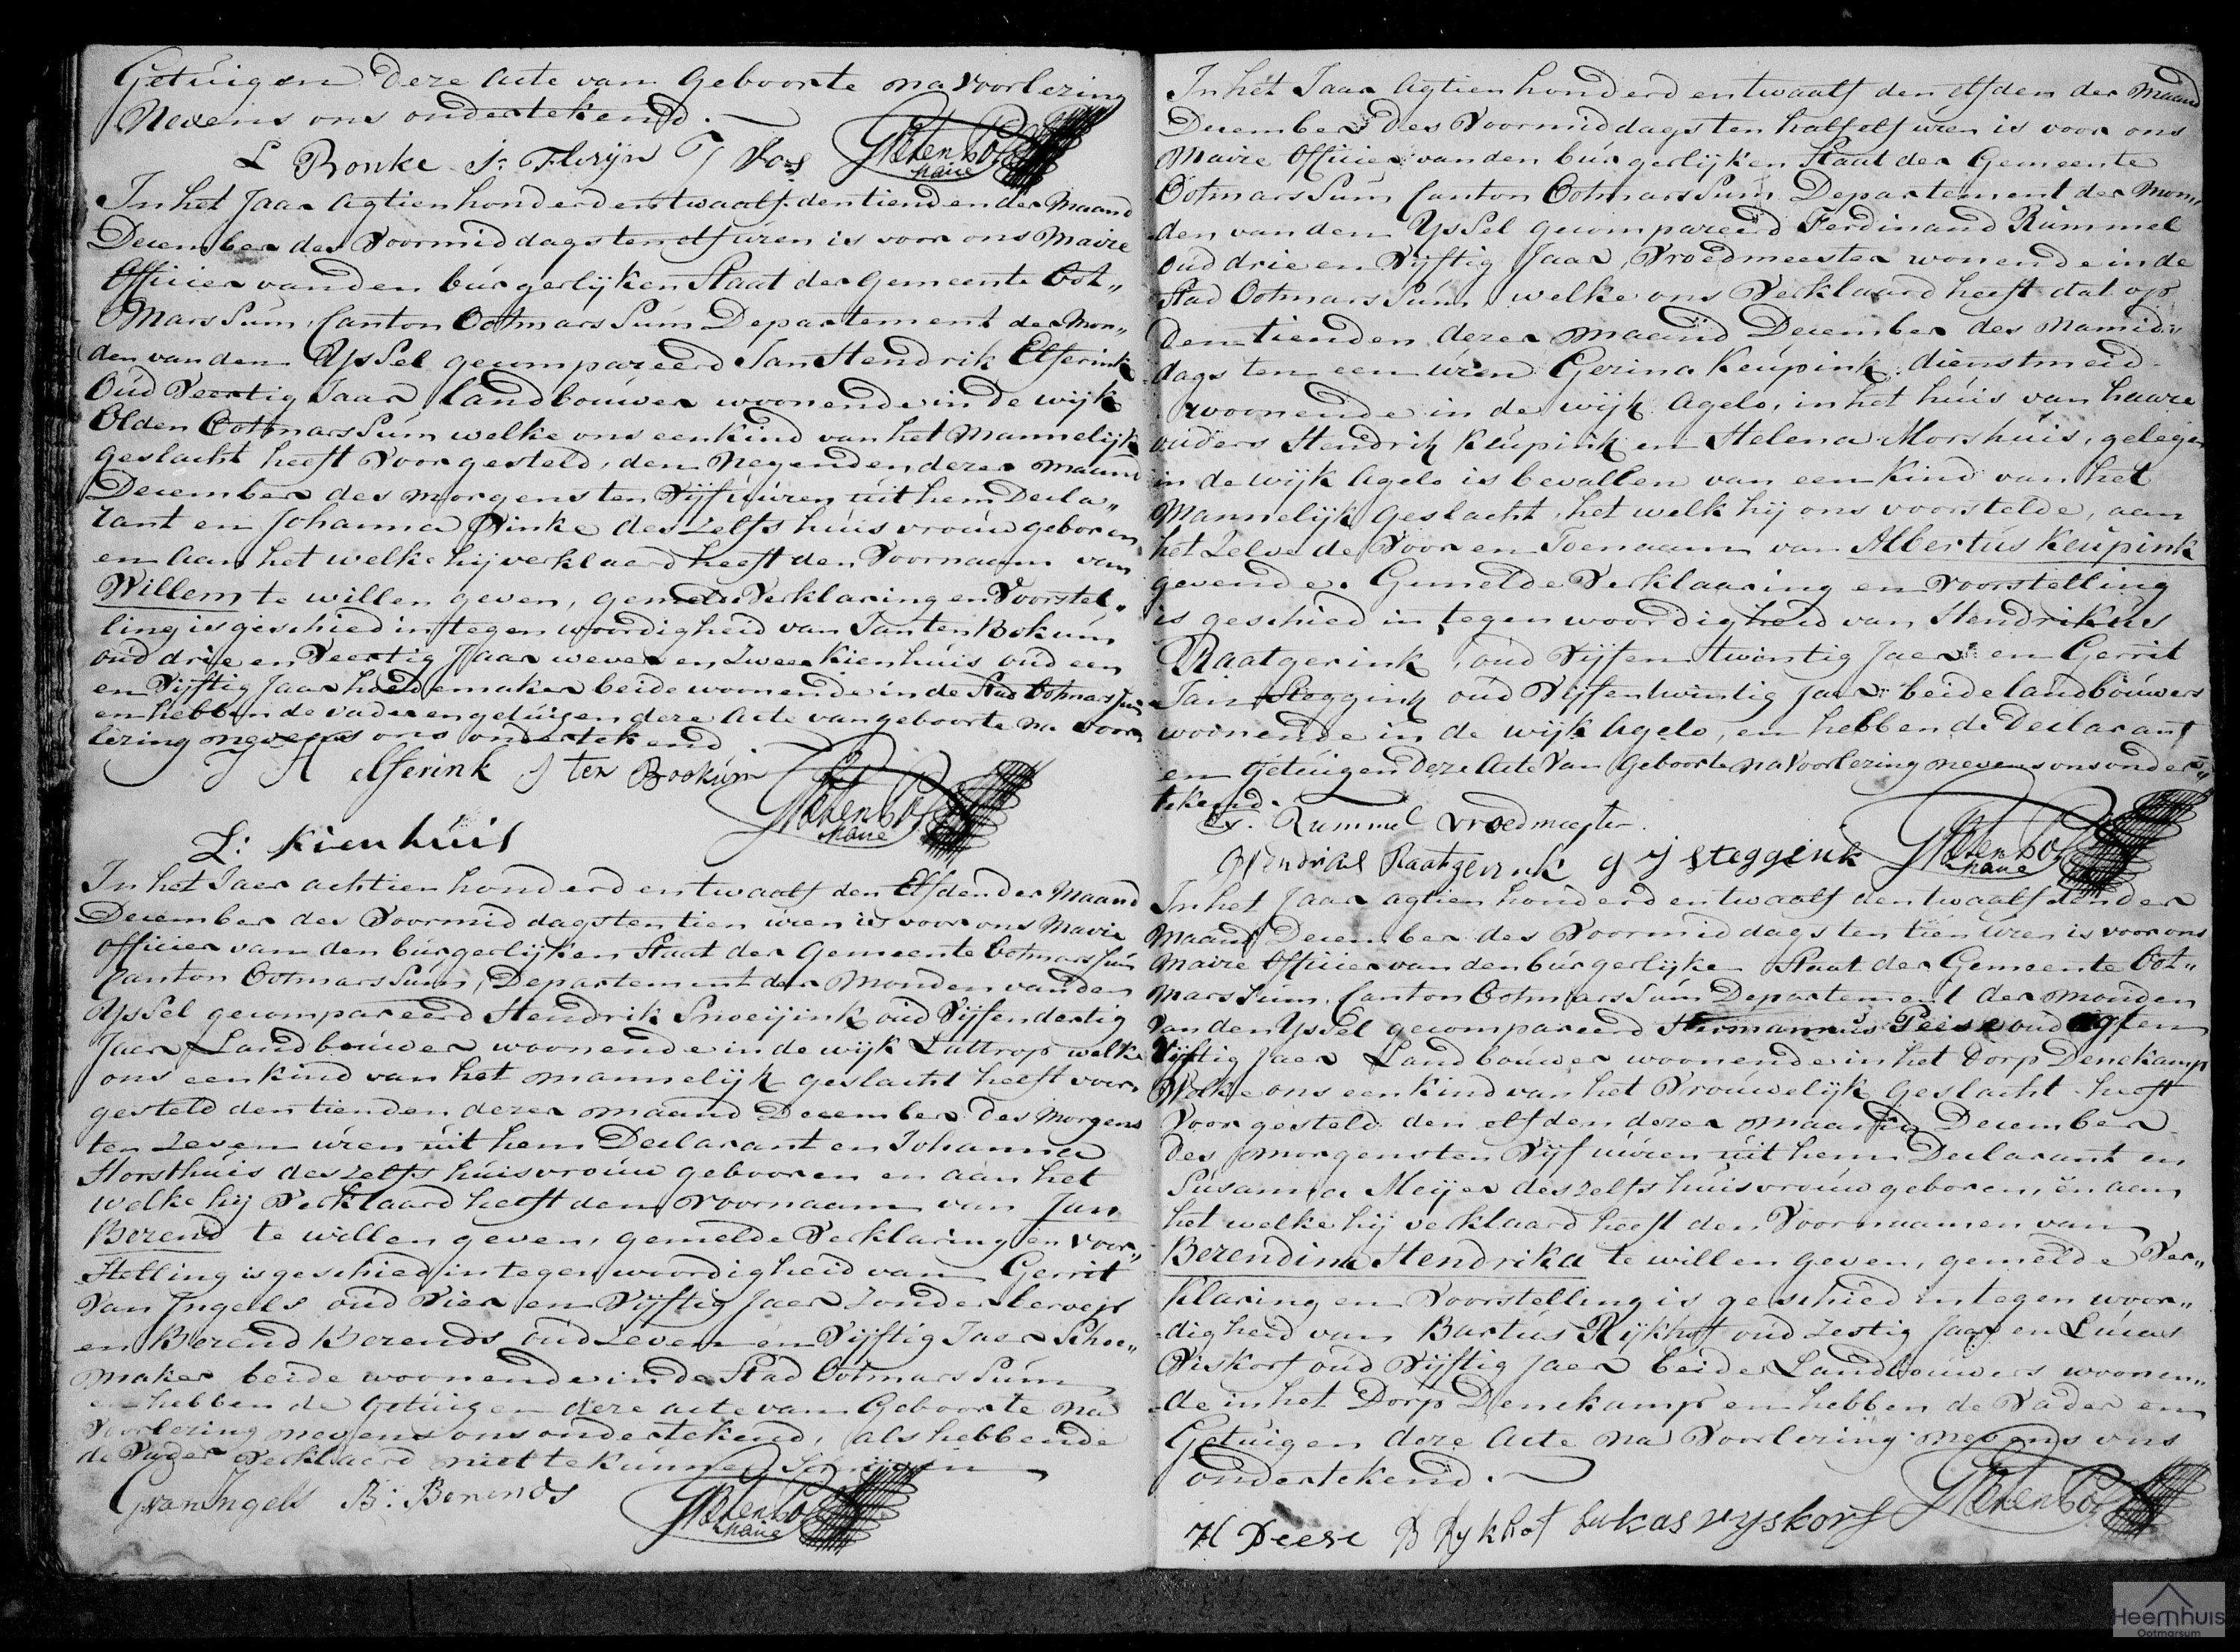 Getuigen deze acte van geboorte na voorlezing
Nevens ons ondertekend.
L Bonke J: Flerijn Vos
Maire
In het Jaar Agtien honderd en twaalf den tienden der Maand
December des Voormiddags ten elf uren is voor ons Maire
Officier van den burgerlijken Staat der Gemeente Oot„
Marssum, Canton Ootmarssum Departement der Mon„
den van den Yssel gecompareerd Jan Hendrik Elferink
Oud Veertig Jaar, landbouwer woonende in de wijk
Olden Ootmarssum welke ons een Kind van het Mannelijk
geslacht heeft Voorgesteld, den Negenden dezer maand
December des morgens ten Vijf uuren uit hem Decla„
rant en Johanna deszelfs huisvrouw geboren
en aan het welke hij verklaard heeft den Voornaam van
Willem te willen geven, gemelde Verklaring en Voorstel„
ling is geschied in tegenwoordigheid van Jan ten Bokum
oud drie en Veertig Jaar wever en Zweer Kienhuis oud een
en Vijftig Jaar hoedemaker beide woonende in de Stad Ootmarssum
en hebben de vader en getuigen deze Acte van geboorte na voor
lezing nevens ons ondertekend
J H elferink J ten Bookum
Maire
Z: Kienhuis
In het Jaer achtien honderd en twaalf den Elfden der Maand
December des Voormiddags ten tien uren is voor ons Maire
Officier van den burgerlijken Staat der Gemeente Ootmarssum
Canton Ootmarssum, Departement der Monden van den
Yssel gecompareerd Hendrik Snoeijink oud Vijfendertig
Jaer, Landbouwer woonende in de wijk Lattrop welke
ons een kind van het mannelijk geslacht heeft voor
gesteld den tienden dezer maand December des Morgens
ten Zeven uren uit hem Declarant en Johanna
Horsthuis deszelfs huisvrouw gebooren en aan het
welke hij Verklaard heeft den Voornaam van Jan
Berend te willen geven, gemelde Verklaring en voor„
Stelling is geschied in tegenwoordigheid van Gerrit
van Ingels oud Vier en Vijftig Jaer zonder beroep
en Berend Berends oud zeven en Vijftig Jaer Schoe„
maker beide woonende in de Stad Ootmarssum
en hebben de Getuigen deze acte van Geboorte na
Voorlezing nevens ons ondertekend, als hebbende
de Vader verklaard niet te kunnen Schrijven
G van Ingels B: Berends
Maire
In het Jaar Agtien honderd en twaalf den elfden der Maand
December des Voormiddags ten half elf uren is voor ons
Maire Officier van den burgerlijken Staat der Gemeente
Ootmarssum Canton Ootmarssum Departement der Mon„
den van den Yssel gecompareerd Ferdinand Rummel
oud drie en Vijftig Jaar, Vroedmeester wonende in de
Stad Ootmarssum, welke ons Verklaard heeft dat op
den tienden dezer maand December des Namid„
dags ten een uren Gezina Keupink dienstmeid
woonende in de wijk Agelo, in het huis van haare
ouders Hendrik Keupink en Helena Morshuis, gelegen
in de wijk Agelo is bevallen van een Kind van het
Mannelijk Geslacht, het welk hij ons voorstelde, aan
het Zelve de Voor en Toenaam van Albertus Keupink
gevende. Gemelde Verklaaring en Voorstelling
is geschied in tegenwoordigheid van Hendrikus
Raatgerink, oud Vijf en twintig Jaer en Gerrit
Jan Steggink oud Vijfentwintig Jaer beide landbouwers
woonende in de wijk Agelo, en hebben de Declarant
en Getuigen deze Acte van Geboorte na Voorlezing nevens ons onder„
tekend.
Rummel vroedmeester
Hendrikes Raatgerink g j steggink
Maire
In het Jaar agtien honderd en twaalf den twaalfden der
Maand December des Voormiddags ten tien uren is voor ons
Maire Officier van den burgerlijken Staat der Gemeente Oot„
Marssum, Canton Ootmarssum Departement der Monden
van den Yssel gecompareerd Hermannus Peese oud agt en
Vijftig Jaer Landbouwer woonende in het Dorp Denekamp
Welke ons een kind van het Vrouwelijk Geslacht heeft
Voorgesteld den elfden dezer maand December
des morgens ten Vijf uuren uit hem Declarant en
Susanna Meijer deszelfs huisvrouw geboren, en aan
het welke hij verklaard heeft den Voornaamen van
Berendina Hendrika te willen geven, gemelde Ver„
Klaring en Voorstelling is geschied in tegenwoor„
digheid van Bartus Rijkhof oud zestig Jaar en Lucas
Viskorf oud Vijftig Jaer beide Landbouwers woonen„
de in het Dorp Denekamp en hebben de Vader en
Getuigen deze Acte na Voorlezing nevens ons
ondertekend.
H Peese B Rykhof Lukas vyskorf
Heemhuis
Ootmarsum